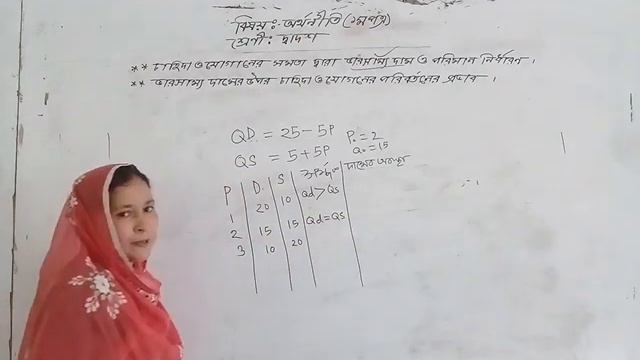 বিষয়ঃ অর্থনীতি (১ম পত্র)
শ্রেণীঃ দ্বাদশ
** চাহিদা ও যোগানের সমতা দ্বারা ভারসাম্য দাম ও পরিমান নির্ধারন।
** ভারসাম্য দামের উপর চাহিদা ও যোগানের পরিবর্তনের প্রভাব।
QD = 25-5P P₀ = 2
QS = 5+5P Q₀ = 15
P D. S দামের অবস্থা
1 20 10 Qd>Qs
2 15 15 Qd=Qs
3 10 20